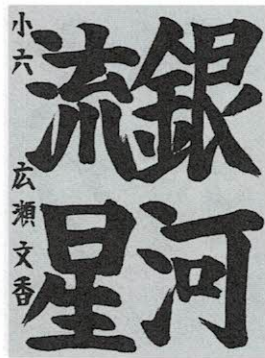 銀河
流星
小六 広瀬文香